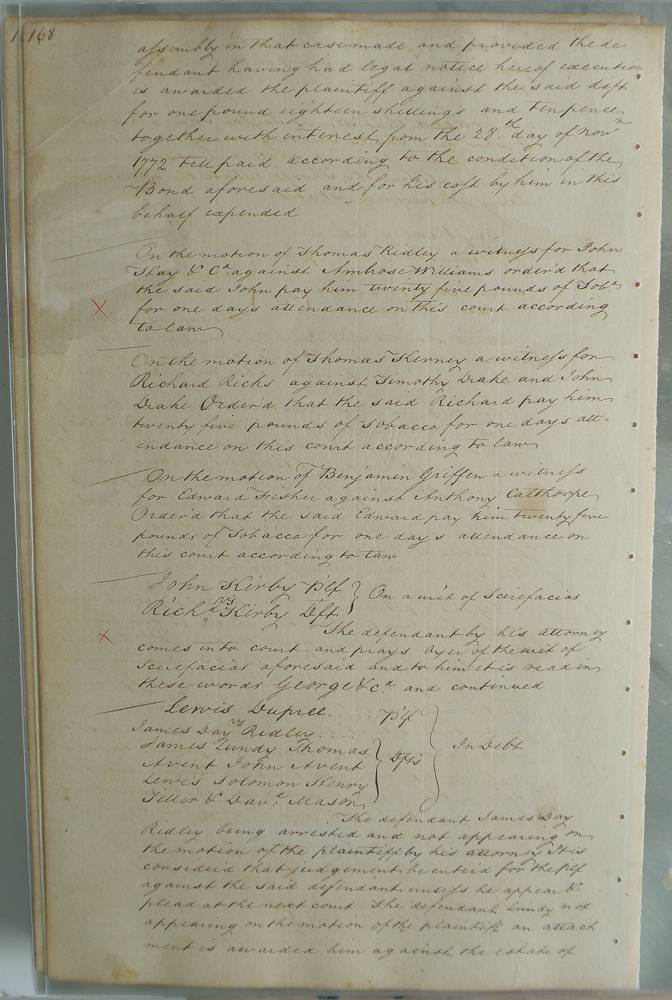 168
assembly in that case made and provided the de-
fendant having had legal notice hereof execution
is awarded the plaintiff against the said deft
for one pound eighteen shillings and tenpence
together with interest from the 28th day of Novr
1772 till paid according to the condition of the
Bond aforesaid and for his cost by him in this
behalf expended
On the motion of Thomas Ridley a witness for John
Hay & Co against Ambrose Williams order'd that
the said John pay him twenty five pounds of Tobo
for one days attendance on this court according
to law
On the motion of Thomas Kerney a witness for
Richard Ricks against Timothy Drake and John
Drake Order'd that the said Richard pay him
twenty five pounds of Tobacco for one days att-
endance on this court according to law
On the motion of Benjamin Griffen a witness
for Edward Fisher against Anthony Calthorpe
Order'd that the said Edward pay him twenty five
pounds of Tobacco for one days attendance on
this court according to law
John Kirby Plf } On a writ of Scirefacias
vs
Richd Kirby Dft
The defendant by his attorney
comes into court and prays Oyer of the writ of
Scirefacias aforesaid and to him it is read in
these words George &ca and continued
Lewis Dupree .... Plf
vs
James Day Ridley ....
James Lundy Thomas
Avent John Avent } Dfts } In Debt
Lewis Solomon Henry
Tiller & Davd Mason
The defendant James Day
Ridley being arrested and not appearing on
the motion of the plaintiff by his attorney It is
consider'd that judgement be enter'd for the plf
against the said defendant unless he appear &
plead at the next court The defendant Lundy not
appearing on the motion of the plaintiff an attach
ment is awarded him against the estate of